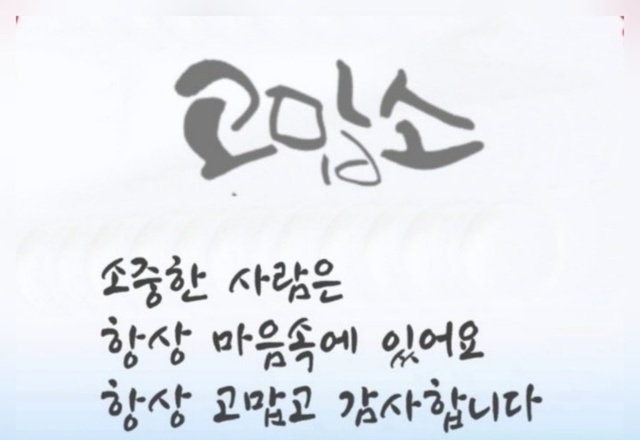 고맙소
소중한 사람은
항상 마음속에 있어요
항상 고맙고 감사합니다